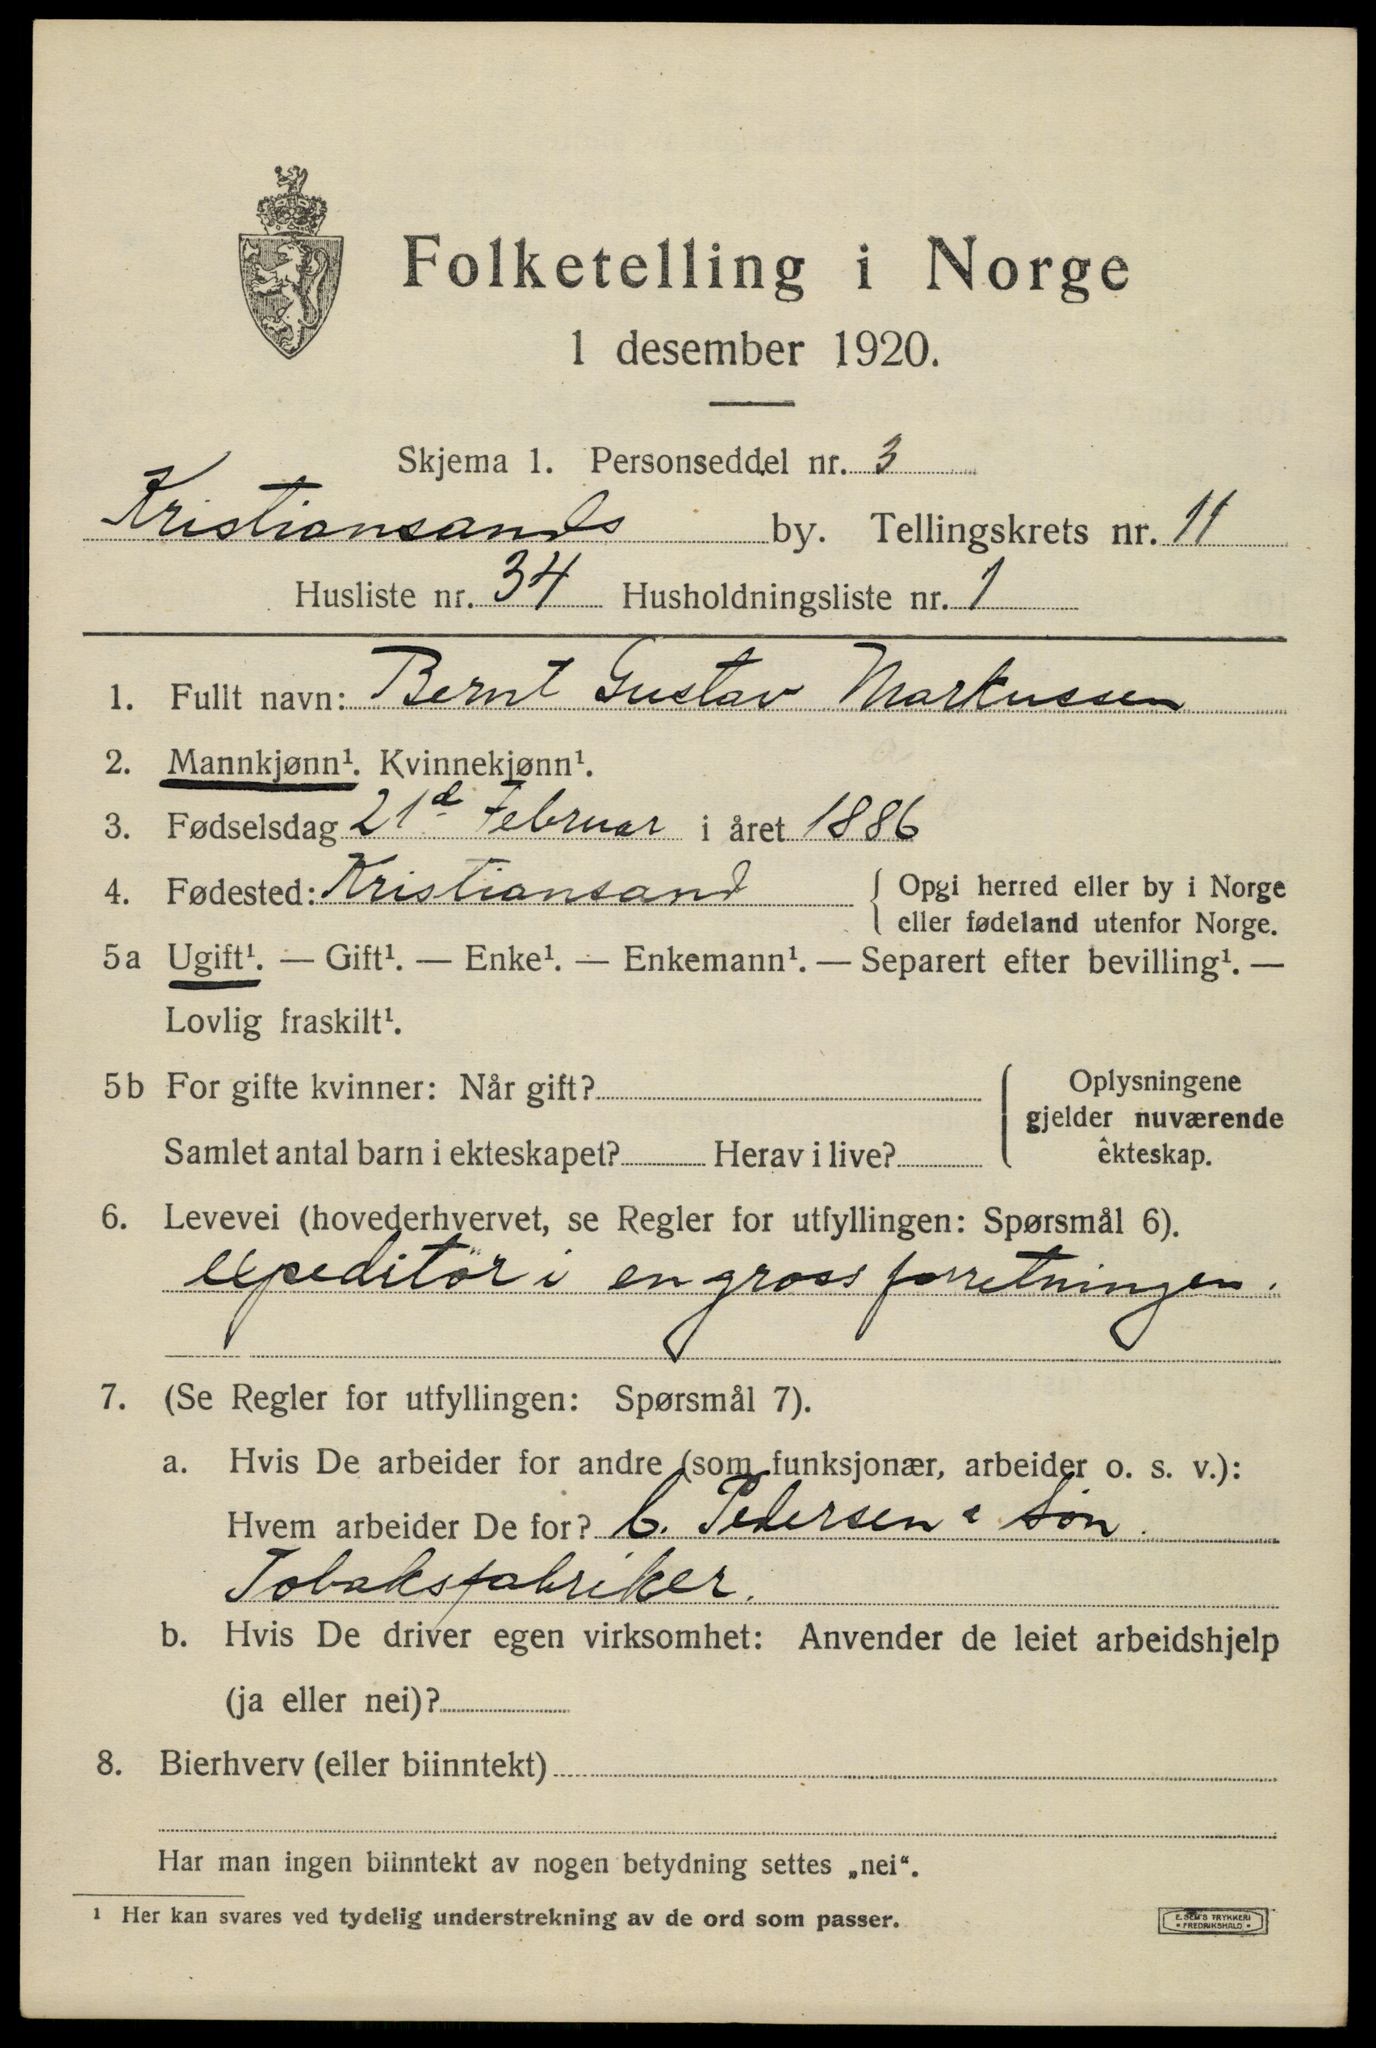 Folketelling i Norge
1 desember 1920.
Skjema 1. Personseddel nr. 3
Kristiansands by. Tellingskrets nr. 11
Husliste nr. 34 Husholdningsliste nr. 1
1. Fullt navn: Bernt Gustav Markussen
2. Mannkjønn¹. Kvinnekjønn¹.
3. Fødselsdag 21d Februar i året 1886
4. Fødested: Kristiansand { Opgi herred eller by i Norge
eller fødeland utenfor Norge.
5a Ugift¹. — Gift¹. — Enke¹. — Enkemann¹. — Separert efter bevilling¹. —
Lovlig fraskilt¹.
5b For gifte kvinner: Når gift? { Oplysningene
gjelder nuværende
Samlet antal barn i ekteskapet? Herav i live? ekteskap.
6. Levevei (hovederhvervet, se Regler for utfyllingen: Spørsmål 6).
expeditør i en gross forretningen.
7. (Se Regler for utfyllingen: Spørsmål 7).
a. Hvis De arbeider for andre (som funksjonær, arbeider o. s. v.):
Hvem arbeider De for? C. Pedersen & Søn
Tobaksfabriker.
b. Hvis De driver egen virksomhet: Anvender de leiet arbeidshjelp
(ja eller nei)?
8. Bierhverv (eller biinntekt)
Har man ingen biinntekt av nogen betydning settes „nei“.
¹ Her kan svares ved tydelig understrekning av de ord som passer.
E. SEM'S TRYKKERI
FREDRIKSHALD